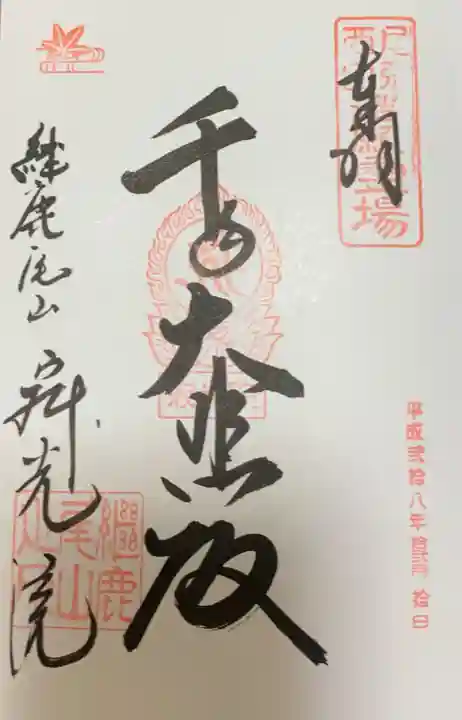 奉拝
千手大悲殿
継鹿尾山 寂光院
繼鹿
尾山
之印
平成弐拾八年拾弐月 拾日